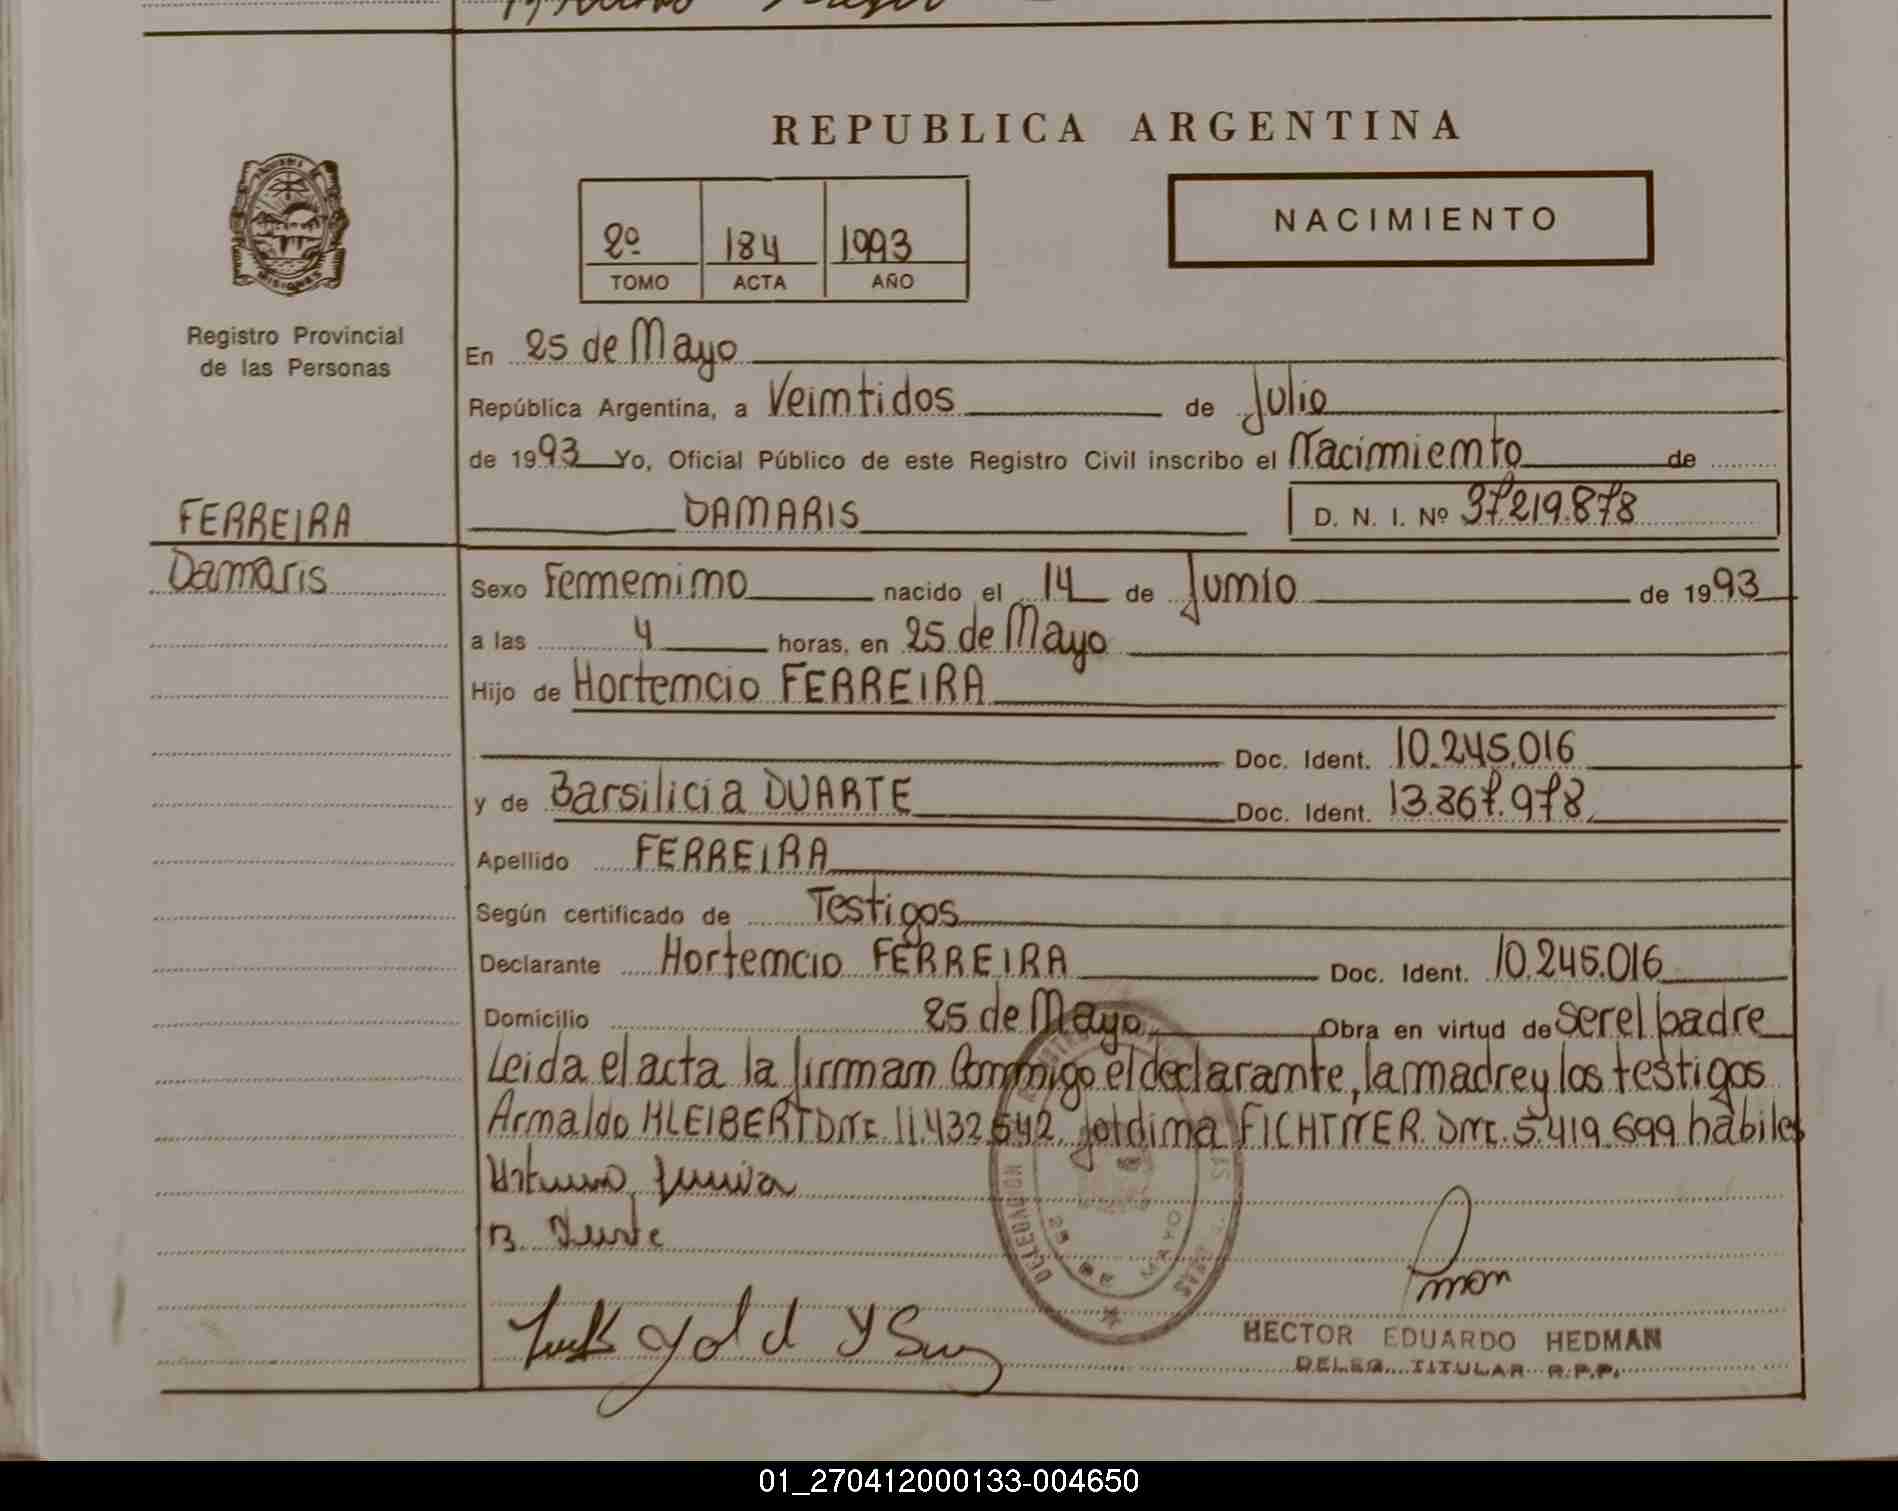 REPUBLICA ARGENTINA
NACIMIENTO
2º 184 1993
TOMO ACTA AÑO
MISIONES
Registro Provincial
de las Personas
En 25 de Mayo
República Argentina, a Veintidos de Julio
de 1993 Yo, Oficial Público de este Registro Civil inscribo el Nacimiento de
DAMARIS D. N. I. Nº 37.219.878
FERREIRA
Damaris
Sexo Femmenino nacido el 14 de Junio de 1993
a las 4 horas, en 25 de Mayo
Hijo de Hortencio FERREIRA
Doc. Ident. 10.245.016
y de Barsilicia DUARTE Doc. Ident. 13.867.978
Apellido FERREIRA
Según certificado de Testigos
Declarante Hortencio FERREIRA Doc. Ident. 10.245.016
Domicilio 25 de Mayo Obra en virtud de ser el padre
Leida el acta la firman Conmigo el declarante, la madre y los testigos
Arnaldo KLEIBERT DNI. 11.432.642. Joldina FICHTNER. DNI. 5.419.699 habiles
B. Duarte
DELEGACION
25 DE MAYO
HECTOR EDUARDO HEDMAN
DELEG. TITULAR R.P.P.
01_270412000133-004650